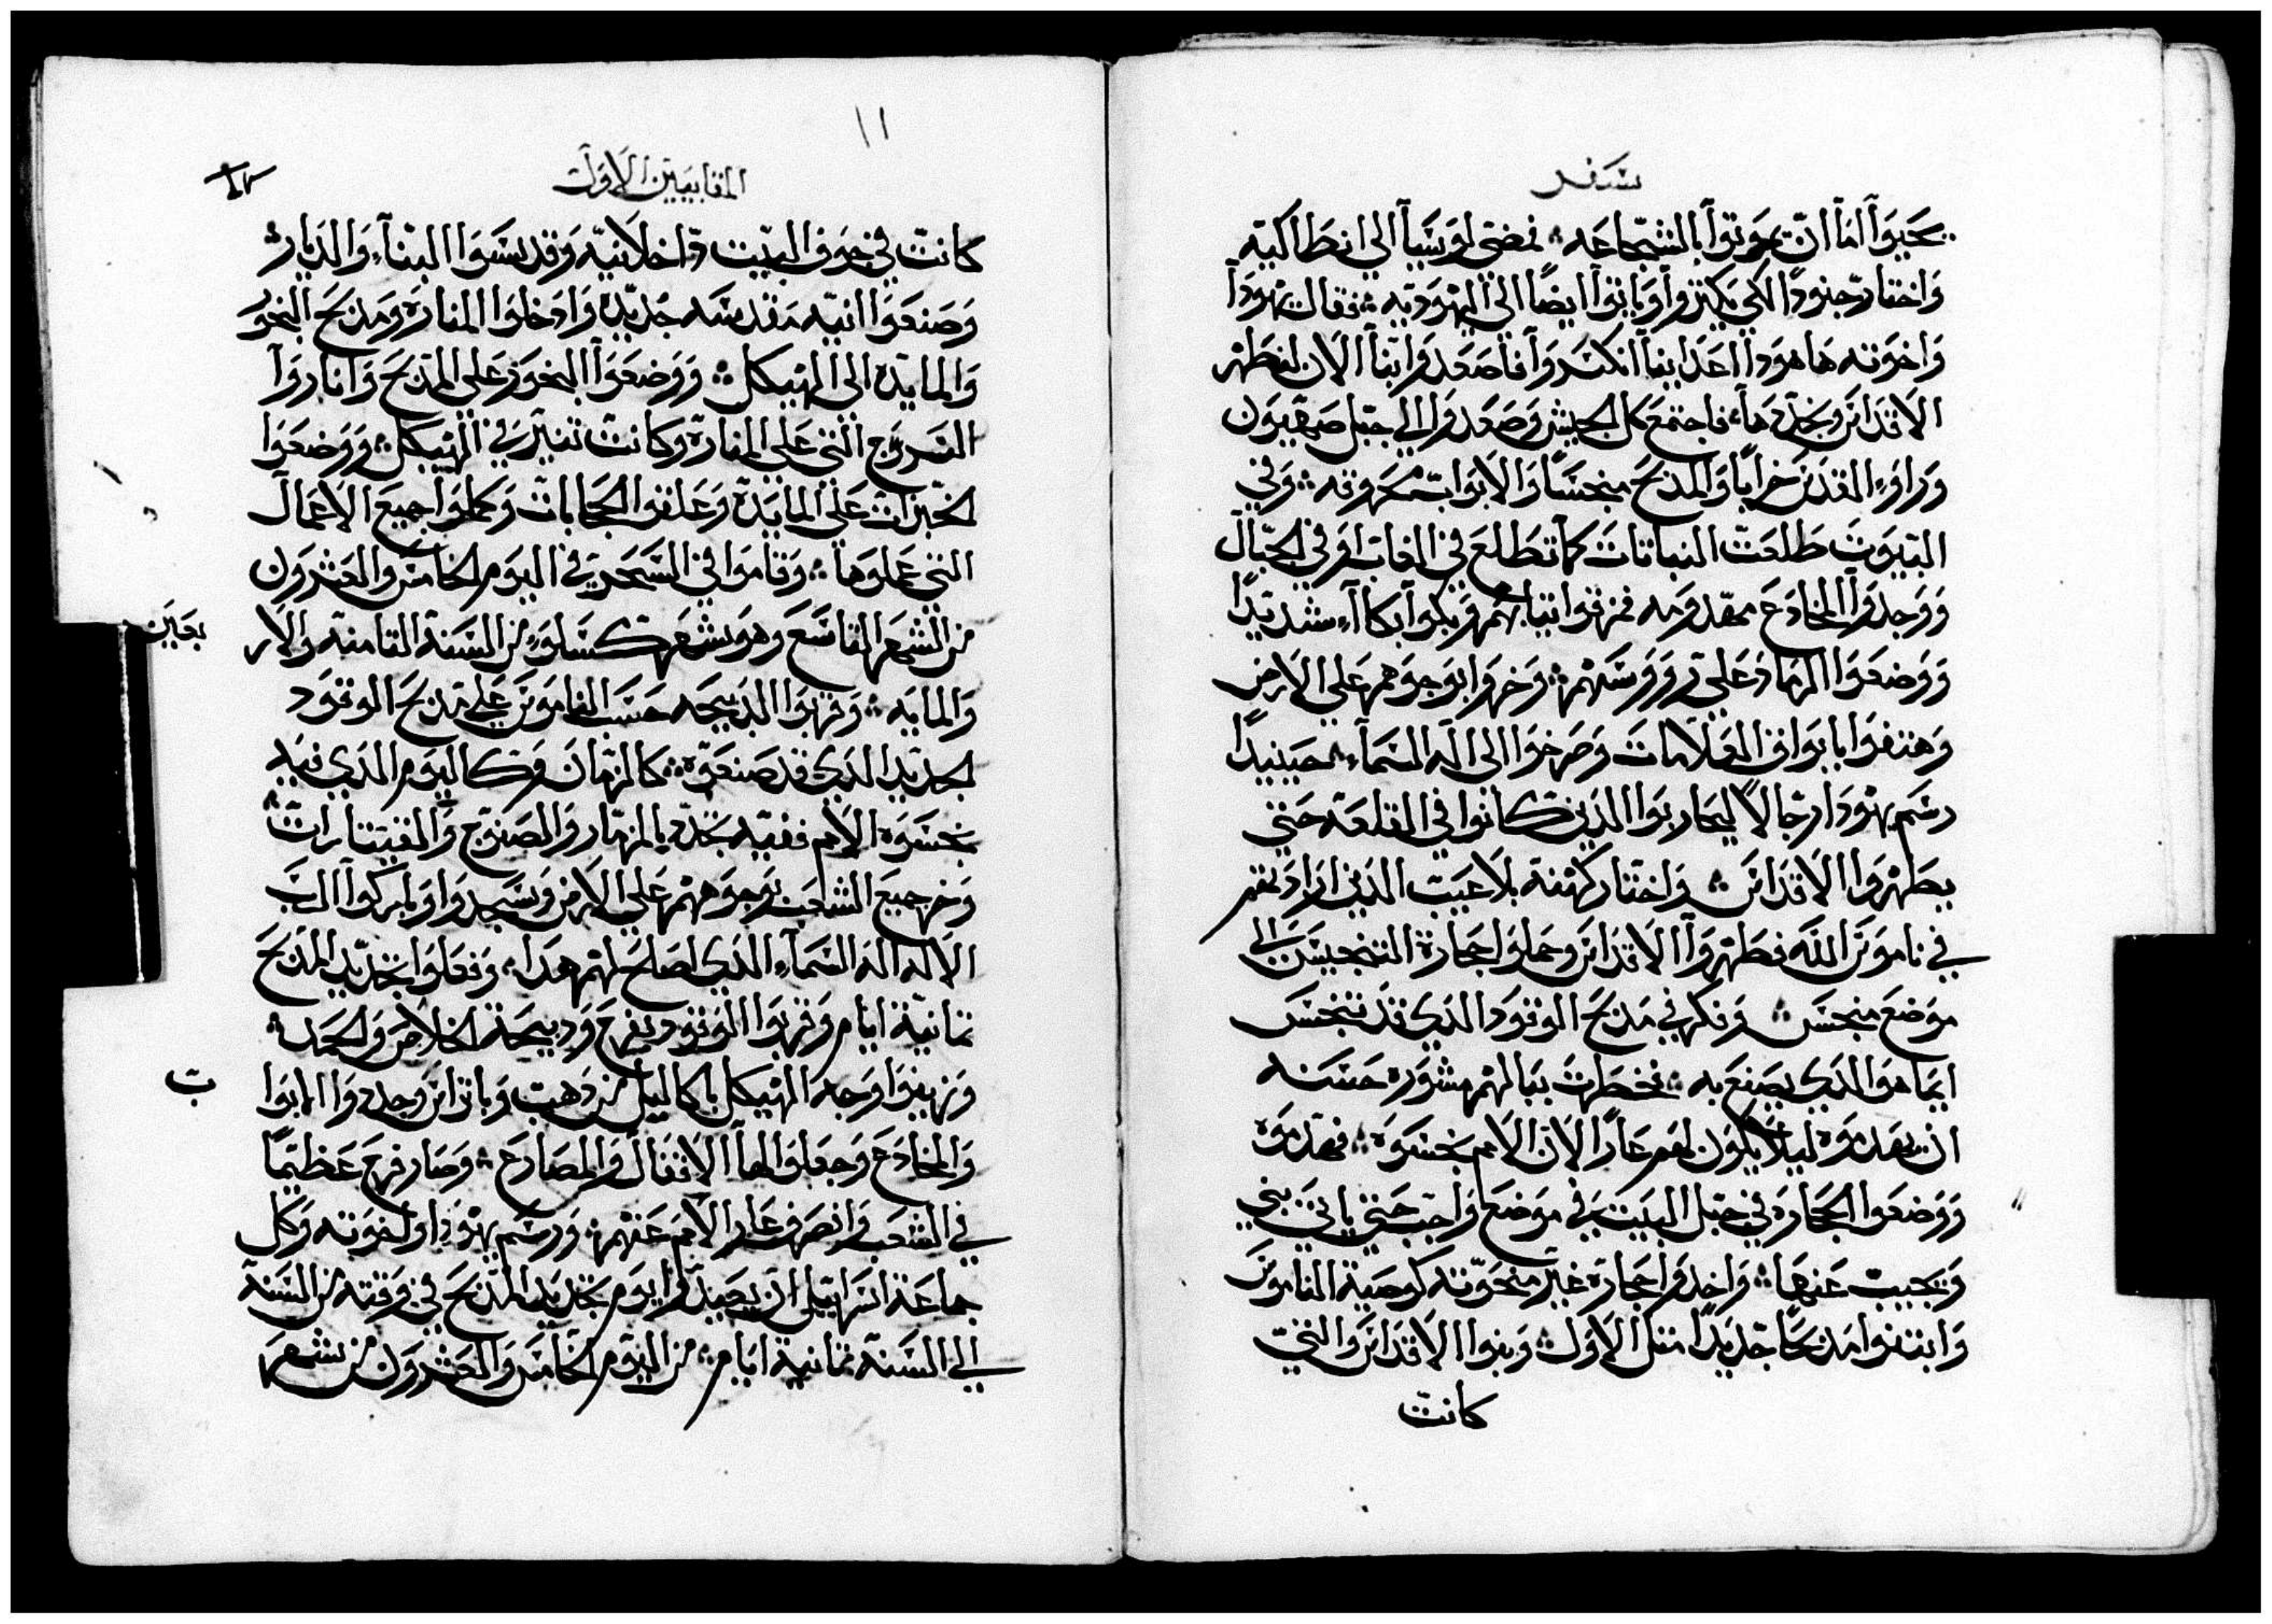 سفر
يحيوا اما ان يموتوا بالشجاعه ؞ فمضى لوسيا الي انطاكيه
واختار جنودًا لكي يكثروا وياتوا ايضًا الي اليهوديه ؞ فقال يهودا
واخوته هاهودا اعداينا انكسروا فاصعدوا بنا الان لنطهر
الاقداس ونجددها ؞ فاجتمع كل الجيش وصعدوا الي جبل صهيون
وراوء المقدس خرابًا والمدبح منجسًا والابواب محروقه ؞ وفي
البيوت طلعت النباتات كما تطلع في الغاب او في الجبال
ووجدوا المخادع مهدومه فمزقوا تيابهم وبكوا بكاآء شديدًا
ووضعوا الرماد على رووسهم ؞ وخروا بوجوههم على الارض
وهتفوا بابواق العلامات وصرخوا الى اله السمآء ؞ حينيدًا
رسم يهودا رجالاً ليحاربوا الدين كانوا في القلعة حتى
يطهروا الاقداس ؞ واختار كهنة بلا عيب الدين ارادتهم
في ناموس الله فطهروا الاقداس وحملوا حجارة التنجيس الي
موضع منجس ؞ وفكر في مدبح الوقود الدي قد تنجس
ايما هو الدي يصنع به ؞ فخطرت ببالهم مشوره حسنه
ان يهدموه ليلا يكون لهم عارًا لان الامم نجسوه ؞ فهدموه
ووضعوا الحجاره في جبل البيت في موضع واجب حتى ياتي نبي
ويجيب عنها ؞ واخدوا حجاره غير منحوته كوصية الناموس
وابتنوا مدبحًا جديدًا متل الاول ؞ وبنوا الاقداس والتي
كانت
١١
المقابيين الاول
كانت في جوف البيت داخلانيه وقدسوا البنآء والديار ؞
وصنعوا انيه مقدسه جديده وادخلوا المناره ومدبح البخور
والمايده الى الهيكل ؞ ووضعوا البخور على المدبح واناروا
السرج التي على المنارة وكانت تنير في الهيكل ؞ ووضعوا
الخبزات على المايدة وعلقوا الحجابات وكملوا جميع الاعمال
التي عملوها ؞ وقاموا في السحر في اليوم الخامس والعشرون
من الشهر التاسع وهو شهر كسلو من السنة التامنه والار
بعين
والمايه ؞ وقربوا الدبيحه حسب الناموس على مدبح الوقود
الجديد الدي قد صنعوه ؞ كالزمان وكاليوم الدي فيه
نجسوه الامم ففيه تجدد بالمزمار والصنوج والقيتارات ؞
وخر جميع الشعب بوجوههم على الارض وسجدوا وباركوا الرب
الاله اله السمآء الدي اصلح لهم هدا ؞ وفعلوا تجديد المدبح
تمانية ايام وقربوا الوقود بفرح ودبيحة الخلاص والحمد ؞
وزينوا وجه الهيكل باكاليل من دهب وباتراس وجددوا الابوا
ب
والمخادع وجعلوا لها الاقفال والمصارع ؞ وصار فرح عظيمًا
في الشعب وانصرف عار الامم عنهم ؞ ورسم يهودا واخوته وكل
جماعة اسراييل ان يعيدوا يوم تجديد المدبح في وقته من السنه
الي السنه تمانية ايام ؞ من اليوم الخامس والعشرون من شهر